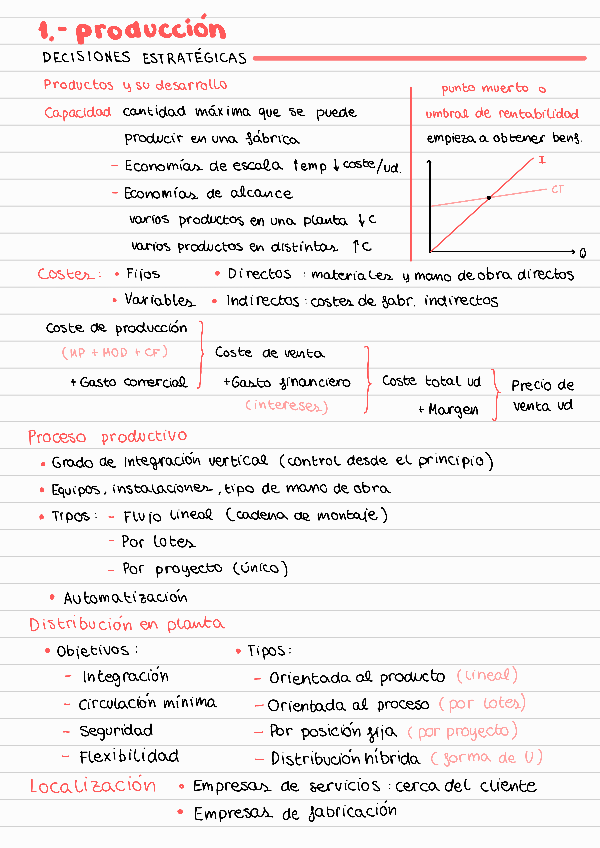 1.- producción
DECISIONES ESTRATÉGICAS
Productos y su desarrollo
Capacidad cantidad máxima que se puede
producir en una fábrica
- Economías de escala ↑emp ↓coste/ud.
- Economías de alcance
varios productos en una planta ↓C
varios productos en distintas ↑C
punto muerto o
umbral de rentabilidad
empieza a obtener benf.
I
CT
Q
Costes: • Fijos • Directos: materiales y mano de obra directos
• Variables • Indirectos: costes de fabr. indirectos
Coste de producción
(MP + MOD + CF) Coste de venta
+ Gasto comercial + Gasto financiero Coste total ud Precio de
(intereses) + Margen venta ud
Proceso productivo
• Grado de integración vertical (control desde el principio)
• Equipos, instalaciones, tipo de mano de obra
• Tipos: - Flujo lineal (cadena de montaje)
- Por lotes
- Por proyecto (único)
• Automatización
Distribución en planta
• Objetivos: • Tipos:
- Integración - Orientada al producto (lineal)
- Circulación mínima - Orientada al proceso (por lotes)
- Seguridad - Por posición fija (por proyecto)
- Flexibilidad - Distribución híbrida (forma de U)
Localización • Empresas de servicios: cerca del cliente
• Empresas de fabricación